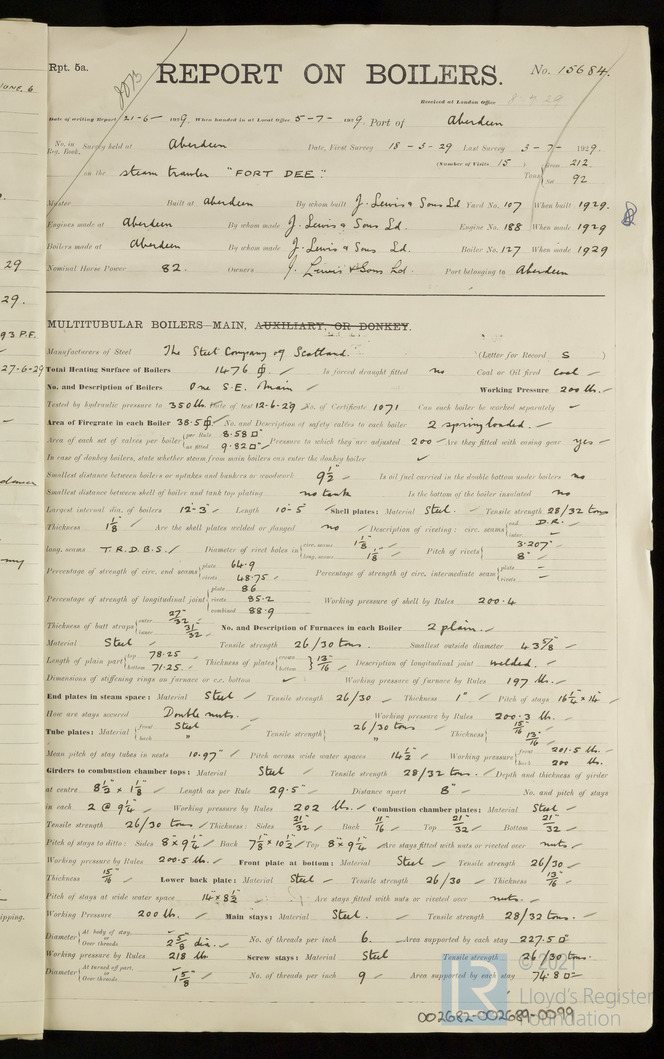 Rpt. 5a.
REPORT ON BOILERS.
No. 15684.
Received at London Office 8-7-29
Date of writing Report 21-6- 1929. When handed in at Local Office 5-7- 1929. Port of Aberdeen
No. in Reg. Book. Survey held at Aberdeen Date, First Survey 18-3-29 Last Survey 3-7- 1929.
(Number of Visits 15)
on the steam trawler "FORT DEE" Tons Gross 212 Net 92
Master Built at Aberdeen By whom built J. Lewis & Sons Ld Yard No. 107 When built 1929.
Engines made at Aberdeen By whom made J. Lewis & Sons Ld. Engine No. 188 When made 1929
Boilers made at Aberdeen By whom made J. Lewis & Sons Ld. Boiler No. 127 When made 1929
Nominal Horse Power 82. Owners J. Lewis & Sons Ld. Port belonging to Aberdeen
MULTITUBULAR BOILERS—MAIN, AUXILIARY, OR DONKEY.
Manufacturers of Steel The Steel Company of Scotland. (Letter for Record S)
Total Heating Surface of Boilers 1476 Is forced draught fitted no Coal or Oil fired Coal
No. and Description of Boilers One S.E. Main Working Pressure 200 lbs.
Tested by hydraulic pressure to 350 lbs. Date of test 12-6-29 No. of Certificate 1071 Can each boiler be worked separately
Area of Firegrate in each Boiler 38.5 No. and Description of safety valves to each boiler 2 spring loaded.
Area of each set of valves per boiler per Rule 8.58 □" as fitted 9.82 □" Pressure to which they are adjusted 200 Are they fitted with easing gear yes
In case of donkey boilers, state whether steam from main boilers can enter the donkey boiler
Smallest distance between boilers or uptakes and bunkers or woodwork 9½" Is oil fuel carried in the double bottom under boilers no
Smallest distance between shell of boiler and tank top plating no tank Is the bottom of the boiler insulated no
Largest internal dia. of boilers 12'-3" Length 10'-5" Shell plates: Material Steel. Tensile strength 28/32 tons
Thickness 1⅛" Are the shell plates welded or flanged no Description of riveting: circ. seams end D.R. inter.
long. seams T.R.D.B.S. Diameter of rivet holes in circ. seams 1⅛" long. seams 1⅛" Pitch of rivets 3.207" 8"
Percentage of strength of circ. end seams plate 64.9 rivets 48.75 Percentage of strength of circ. intermediate seam plate rivets
Percentage of strength of longitudinal joint plate 86 rivets 85.2 combined 88.9 Working pressure of shell by Rules 200.4
Thickness of butt straps outer 27/32" inner 31/32" No. and Description of Furnaces in each Boiler 2 plain.
Material Steel Tensile strength 26/30 tons. Smallest outside diameter 43⅝"
Length of plain part top 78.25 bottom 71.25. Thickness of plates crown bottom 13/16" Description of longitudinal joint welded.
Dimensions of stiffening rings on furnace or c.c. bottom Working pressure of furnace by Rules 197 lbs.
End plates in steam space: Material Steel Tensile strength 26/30 Thickness 1" Pitch of stays 16¼" × 14"
How are stays secured Double nuts. Working pressure by Rules 200.3 lbs.
Tube plates: Material front Steel back " Tensile strength 26/30 tons " Thickness 15/16" 13/16"
Mean pitch of stay tubes in nests 10.97" Pitch across wide water spaces 14½" Working pressure front 201.5 lbs. back 200 lbs.
Girders to combustion chamber tops: Material Steel Tensile strength 28/32 tons. Depth and thickness of girder
at centre 8½" × 1⅛" Length as per Rule 29.5" Distance apart 8" No. and pitch of stays
in each 2 @ 9¼" Working pressure by Rules 202 lbs. Combustion chamber plates: Material Steel
Tensile strength 26/30 tons Thickness: Sides 21/32" Back 11/16" Top 21/32" Bottom 21/32"
Pitch of stays to ditto: Sides 8" × 9¼" Back 7⅛" × 10½" Top 8" × 9¼" Are stays fitted with nuts or riveted over nuts
Working pressure by Rules 200.5 lbs. Front plate at bottom: Material Steel Tensile strength 26/30
Thickness 15/16" Lower back plate: Material Steel Tensile strength 26/30 Thickness 13/16"
Pitch of stays at wide water space 14" × 8½" Are stays fitted with nuts or riveted over nuts.
Working Pressure 200 lbs. Main stays: Material Steel. Tensile strength 28/32 tons.
Diameter At body of stay, or Over threads 2⅝" dia. No. of threads per inch 6. Area supported by each stay 227.5 □"
Working pressure by Rules 218 lbs Screw stays: Material Steel Tensile strength 26/30 tons.
Diameter At turned off part, or Over threads 1⅝" No. of threads per inch 9 Area supported by each stay 74.8 □"
© 2021
LR Lloyd's Register Foundation
002682-002689-0099